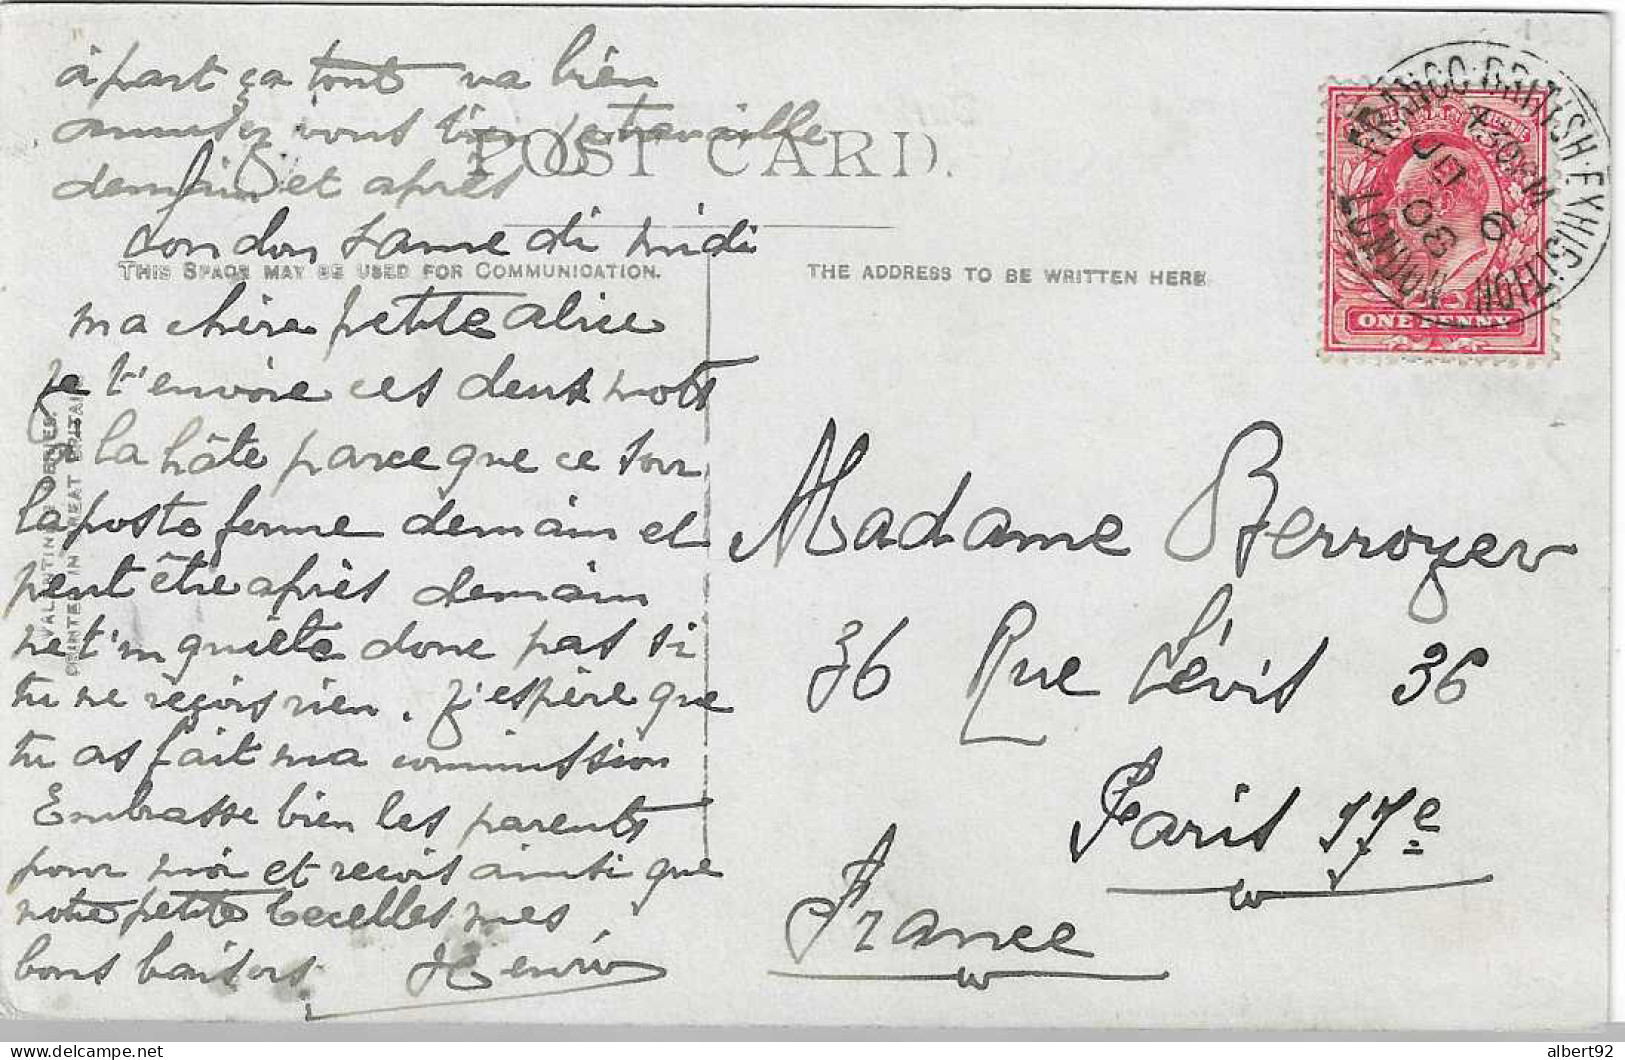 à part ça tout va bien
amusez vous bien je travaille
demain et après
POST CARD.
London samedi midi
THIS SPACE MAY BE USED FOR COMMUNICATION.
THE ADDRESS TO BE WRITTEN HERE.
ma chère petite alice
je t'envoie ces deux mots
à la hâte parce que ce soir
la poste ferme demain et
peut être après demain
ne t'inquiète donc pas si
tu ne reçois rien. j'espère que
tu as fait ma commission
Embrasse bien les parents
pour moi et reçois ainsi que
notre petite mes
bons baisers Henri
Madame Berroyer
36 Rue Lévis 36
Paris 17e
France
FRANCO-BRITISH-EXHIBITION
LONDON
7.30 PM
JU 6
08
ONE PENNY
VALENTINE
PRINTED IN GREAT BRITAIN
albert92